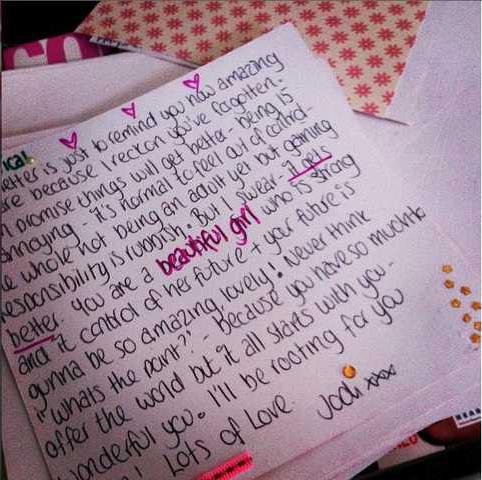 letter is just to remind you how amazing
are because I reckon you've forgotten.
promise things will get better - being is
annoying - it's normal to feel out of control -
whole not being an adult yet but gaining
responsibility is rubbish. But I swear - it gets
better. You are a beautiful girl who is strong
and it control of her future + your future is
gunna be so amazing lovely! Never think
"whats the point?" - because you have so much to
offer the world but it all starts with you -
wonderful you. I'll be rooting for you
! Lots of Love. Jodi xxxx